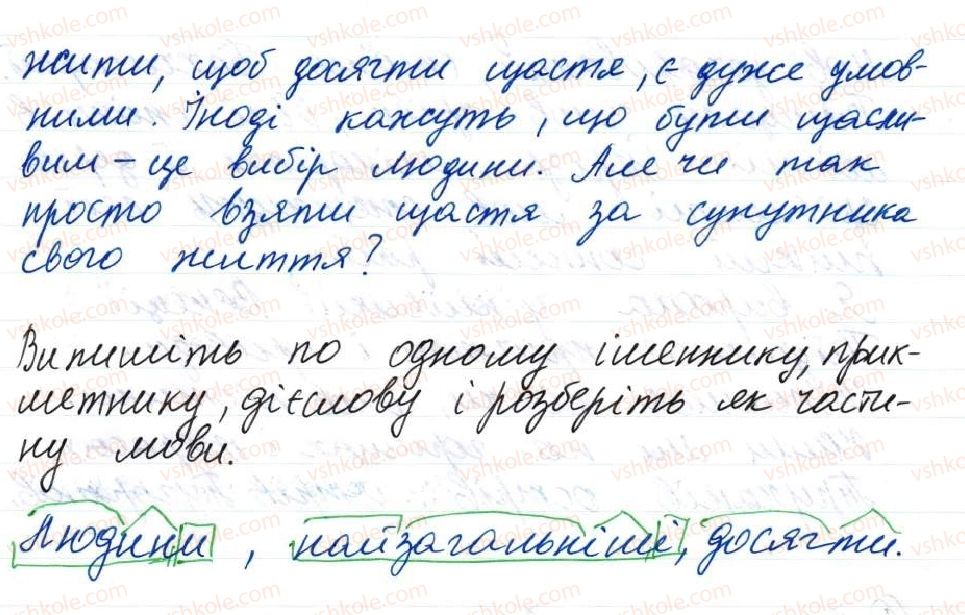 жити, щоб досягти щастя, є дуже умов-
ними. Іноді кажуть, що бути щасли-
вим – це вибір людини. Але чи так
просто взяти щастя за супутника
свого життя?
Випишіть по одному іменнику, прик-
метнику, дієслову і розберіть як части-
ну мови.
Людини, найзагальніші, досягти.